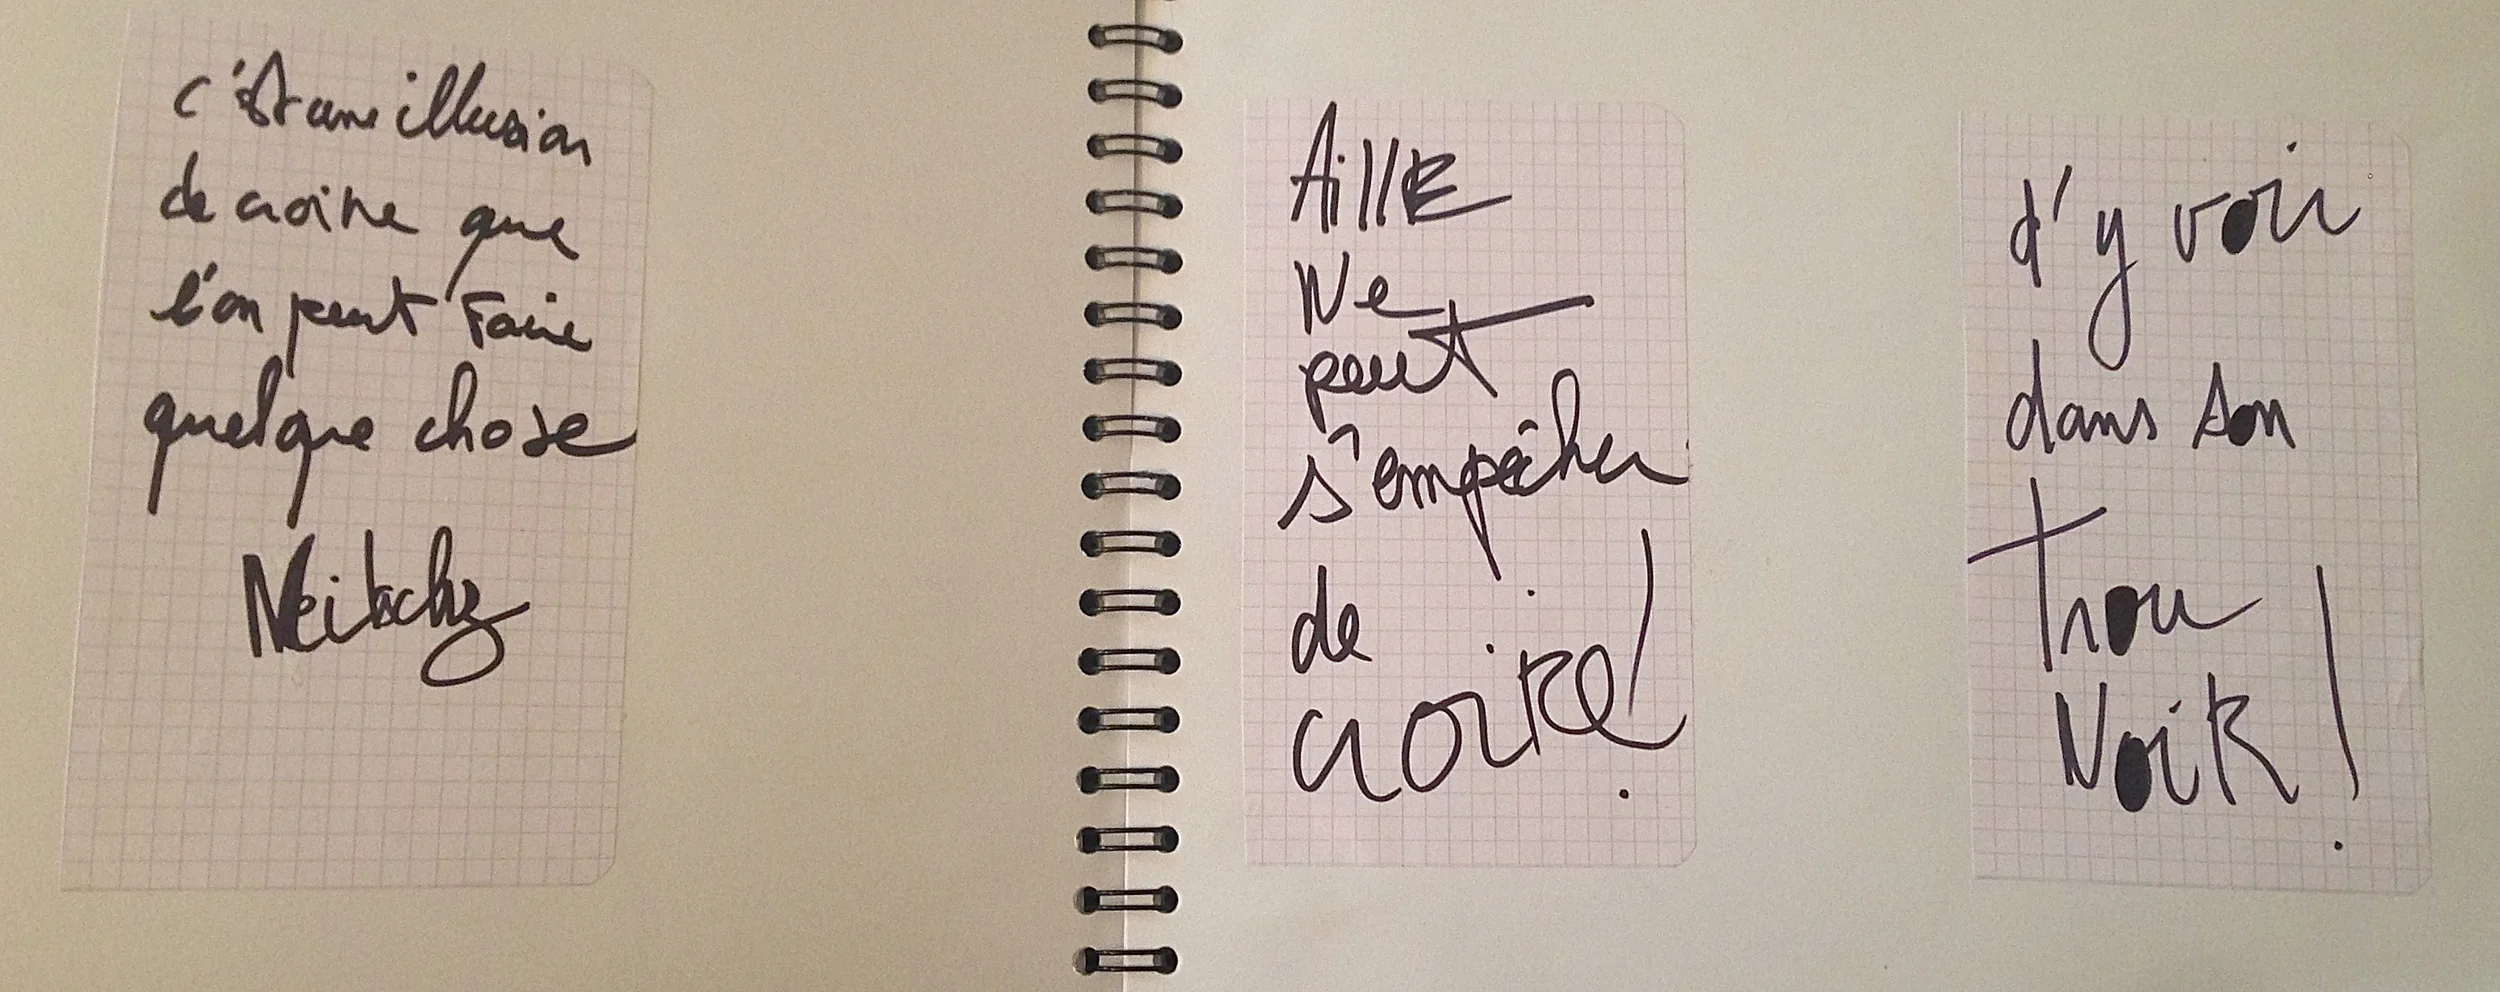 c'est une illusion
de croire que
l'on peut Faire
quelque chose
Neitschz
AillE
Ne
peut
s'empêcher
de
croire!
d'y voir
dans son
trou
Noir!